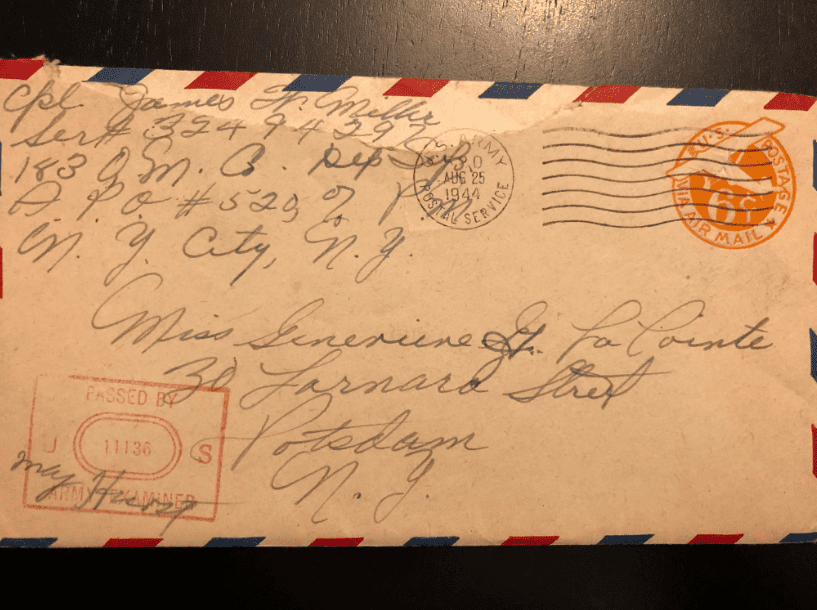 Cpl James W. Miller
Ser# 32494293
183 Q.M. B. Dep Sup
A.P.O #520, % P.M.
N.Y. City, N.Y.
U.S. ARMY
30
AUG 25
1944
POSTAL SERVICE
U.S. POSTAGE
6c
VIA AIR MAIL
Miss Genevieve G. La Pointe
30 Street
Potsdam
N.Y.
PASSED BY
U 11136 S
ARMY EXAMINER